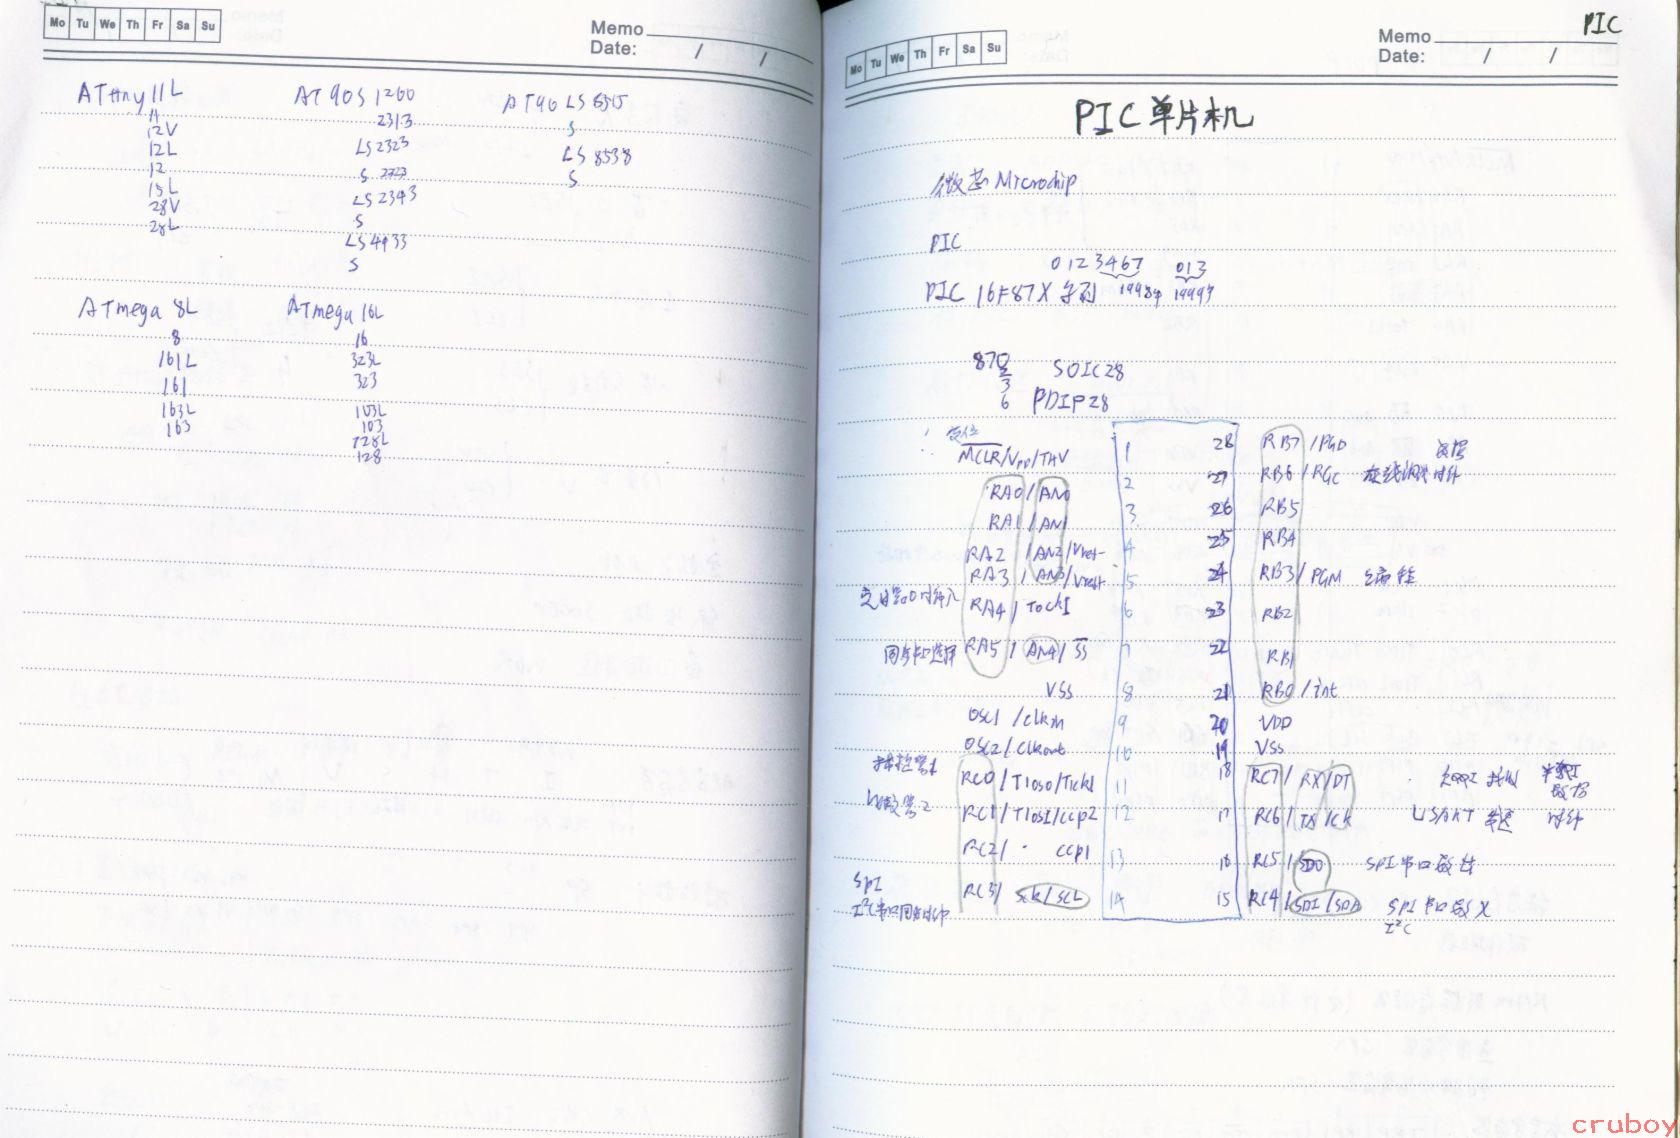 Mo Tu We Th Fr Sa Su
Memo
Date: / /
ATtiny 11L
11
12V
12L
12
15L
28V
28L
AT90S 1200
2313
LS2323
S 2323
LS2343
S
LS4433
S
AT90 LS8515
S
LS 8535
S
ATmega 8L
8
161L
161
163L
163
ATmega 16L
16
323L
323
103L
103
128L
128
PIC
Mo Tu We Th Fr Sa Su
Memo
Date: / /
PIC单片机
微芯 Microchip
PIC
0123467 013
PIC 16F87X 系列 1998年 1999年
870
2
3
6
SOIC28
PDIP28
复位
MCLR/Vpp/THV 1 28 RB7/PGD 数据
RA0/AN0 2 27 RB6/PGC 在线调试时钟
RA1/AN1 3 26 RB5
RA2/AN2/Vref- 4 25 RB4
RA3/AN3/Vref+ 5 24 RB3/PGM 编程
定时器0时钟入 RA4/TockI 6 23 RB2
同步串口选择 RA5/AN4/SS 7 22 RB1
VSS 8 21 RB0/Int
OSC1/Clkin 9 20 VDD
OSC2/Clkout 10 19 VSS
RC0/T1oso/T1ck1 11 18 RC7/RX/DT 数据
RC1/T1osI/CCP2 12 17 RC6/TX/CK USART 发送 时钟
RC2/ CCP1 13 16 RC5/SDO SPI串口数出
SPI RC3/Sck/SCL 14 15 RC4/SDI/SDA SPI串口数入
I²C串口同步时钟 I²C
cruboy